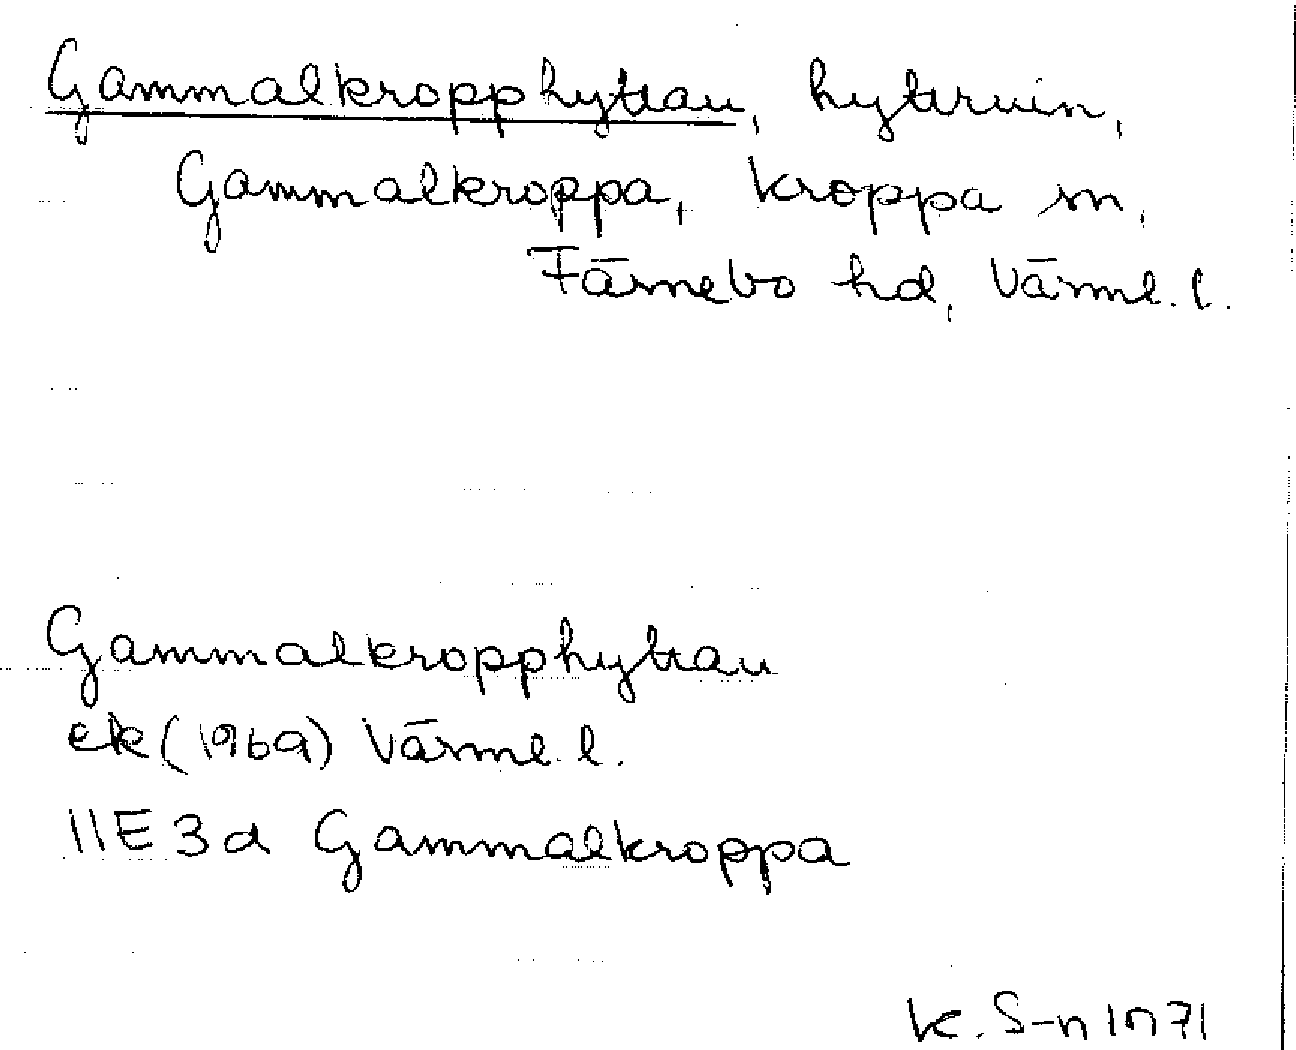 Gammalkropphyttan, hyttruin,
Gammalkroppa, Kroppa sn,
Färnebo hd, Värml. l.
Gammalkropphyttan
ek (1969) Värml. l.
11E 3d Gammalkroppa
K. S-n 1971